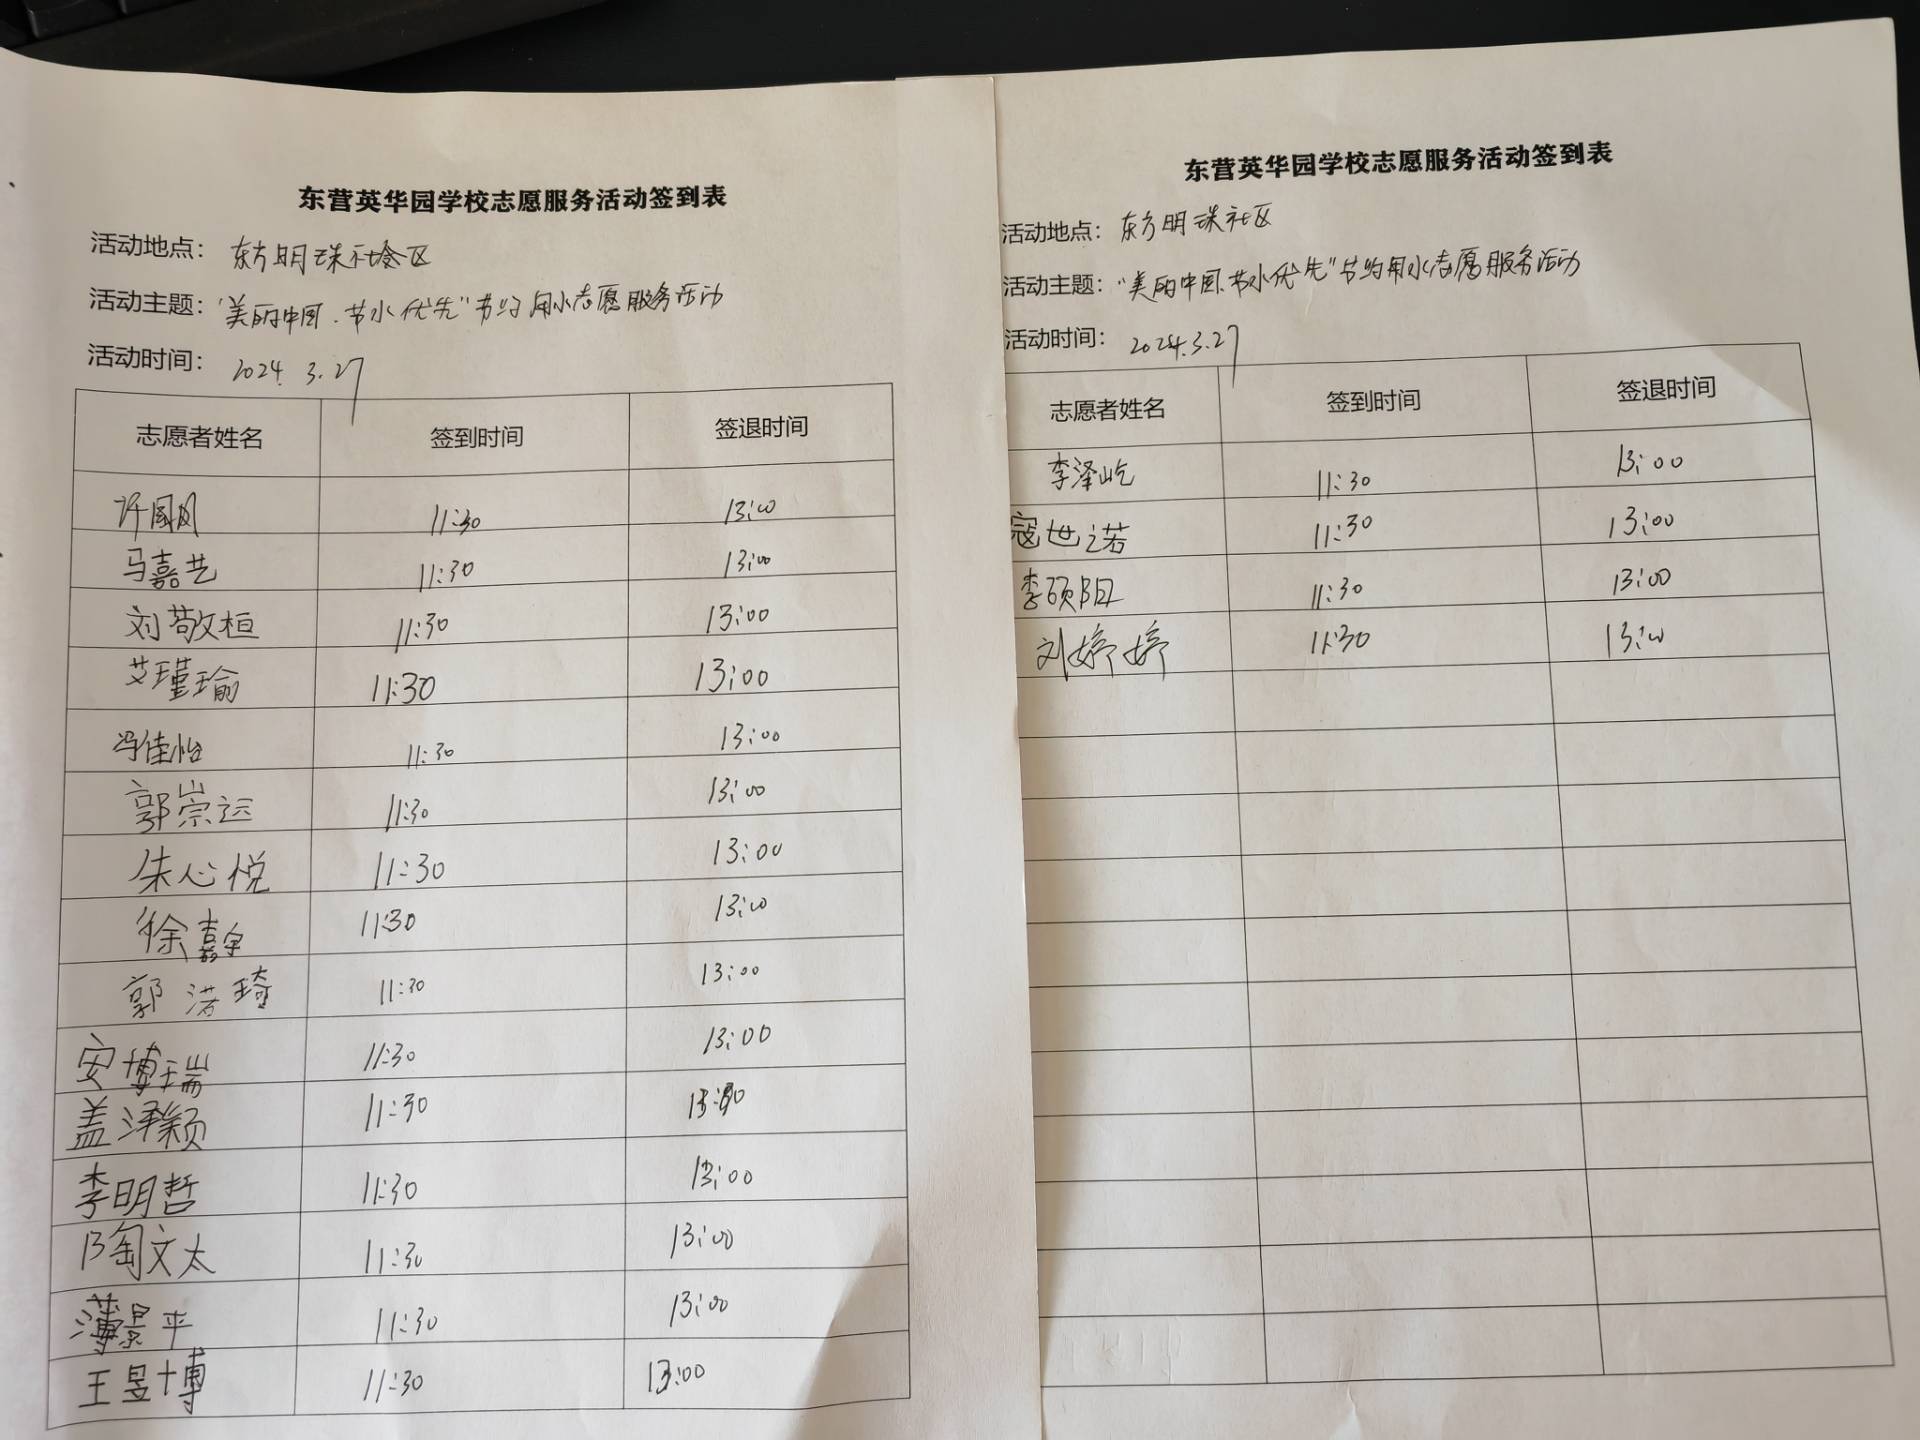 东营英华园学校志愿服务活动签到表
活动地点： 东方明珠社会区
活动主题： "美丽中国.节水优先"节约用水志愿服务活动
活动时间： 2024.3.27
志愿者姓名 签到时间 签退时间
许国凤 11:30 13:00
马嘉艺 11:30 13:00
刘敬桓 11:30 13:00
艾瑾瑜 11:30 13:00
冯佳怡 11:30 13:00
郭崇远 11:30 13:00
朱心悦 11:30 13:00
徐嘉宇 11:30 13:00
郭洁琦 11:30 13:00
安博瑞 11:30 13:00
盖泽颖 11:30 13:00
李明哲 11:30 13:00
陶文太 11:30 13:00
薄景平 11:30 13:00
王昱博 11:30 13:00
东营英华园学校志愿服务活动签到表
活动地点： 东方明珠社区
活动主题： "美丽中国.节水优先"节约用水志愿服务活动
活动时间： 2024.3.27
志愿者姓名 签到时间 签退时间
李泽屹 11:30 13:00
寇世诺 11:30 13:00
李硕阳 11:30 13:00
刘婷婷 11:30 13:00